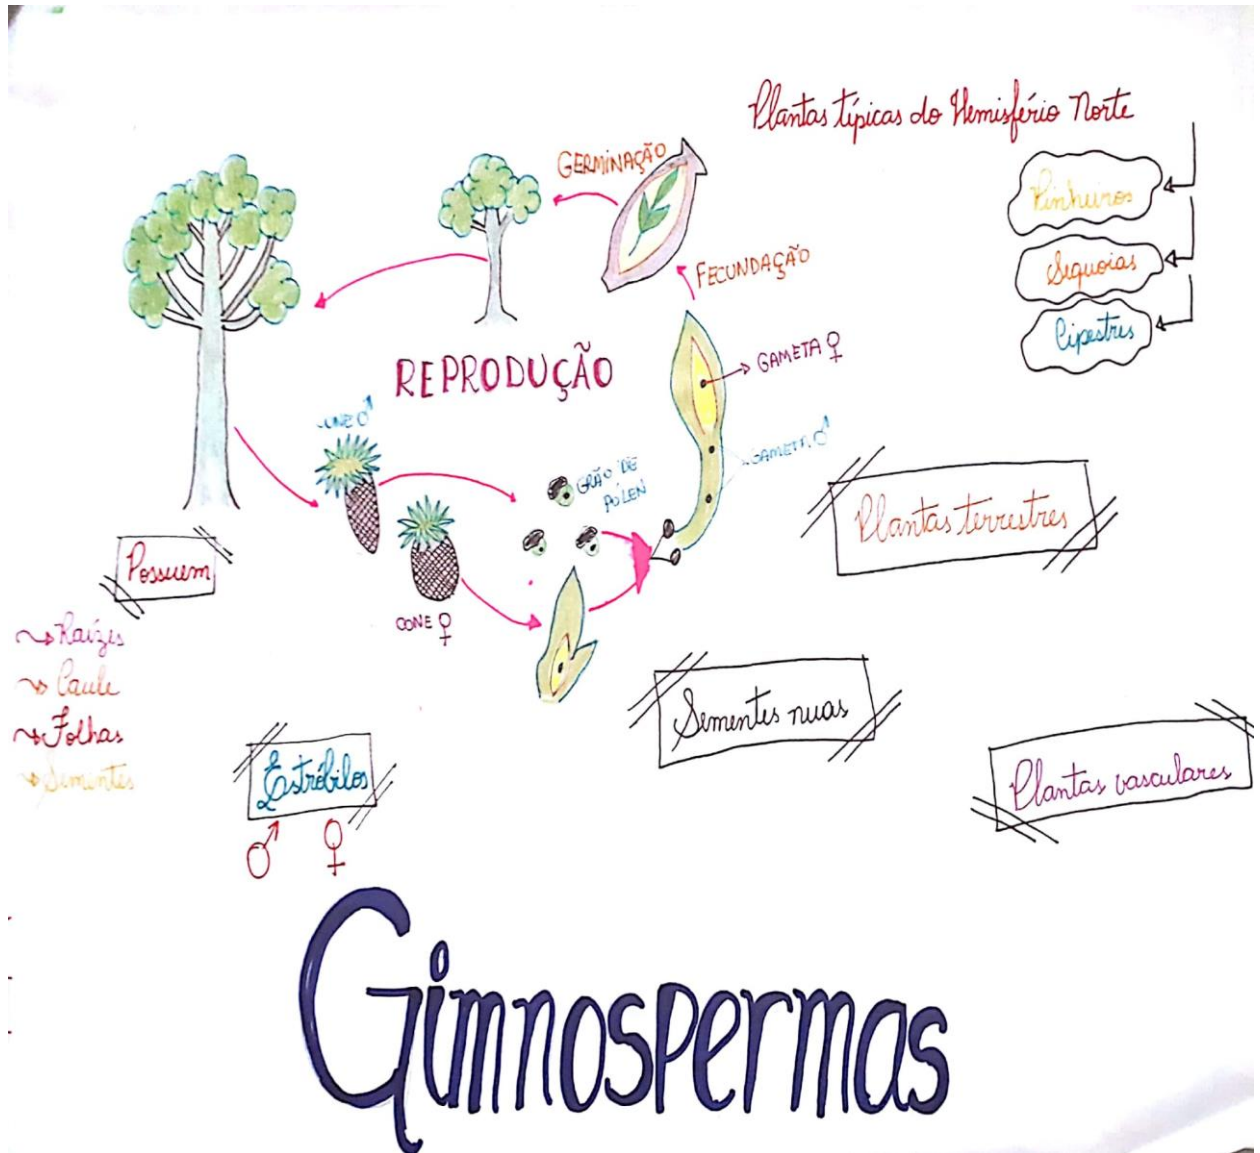 Plantas típicas do Hemisfério Norte
Pinheiros
Sequoias
Cipestres
GERMINAÇÃO
FECUNDAÇÃO
GAMETA ♀
GAMETA ♂
REPRODUÇÃO
CONE ♂
GRÃO DE
PÓLEN
CONE ♀
Plantas terrestres
Possuem
Raízes
Caule
Folhas
Sementes
Sementes nuas
Estróbilos
♂ ♀
Plantas vasculares
Gimnospermas